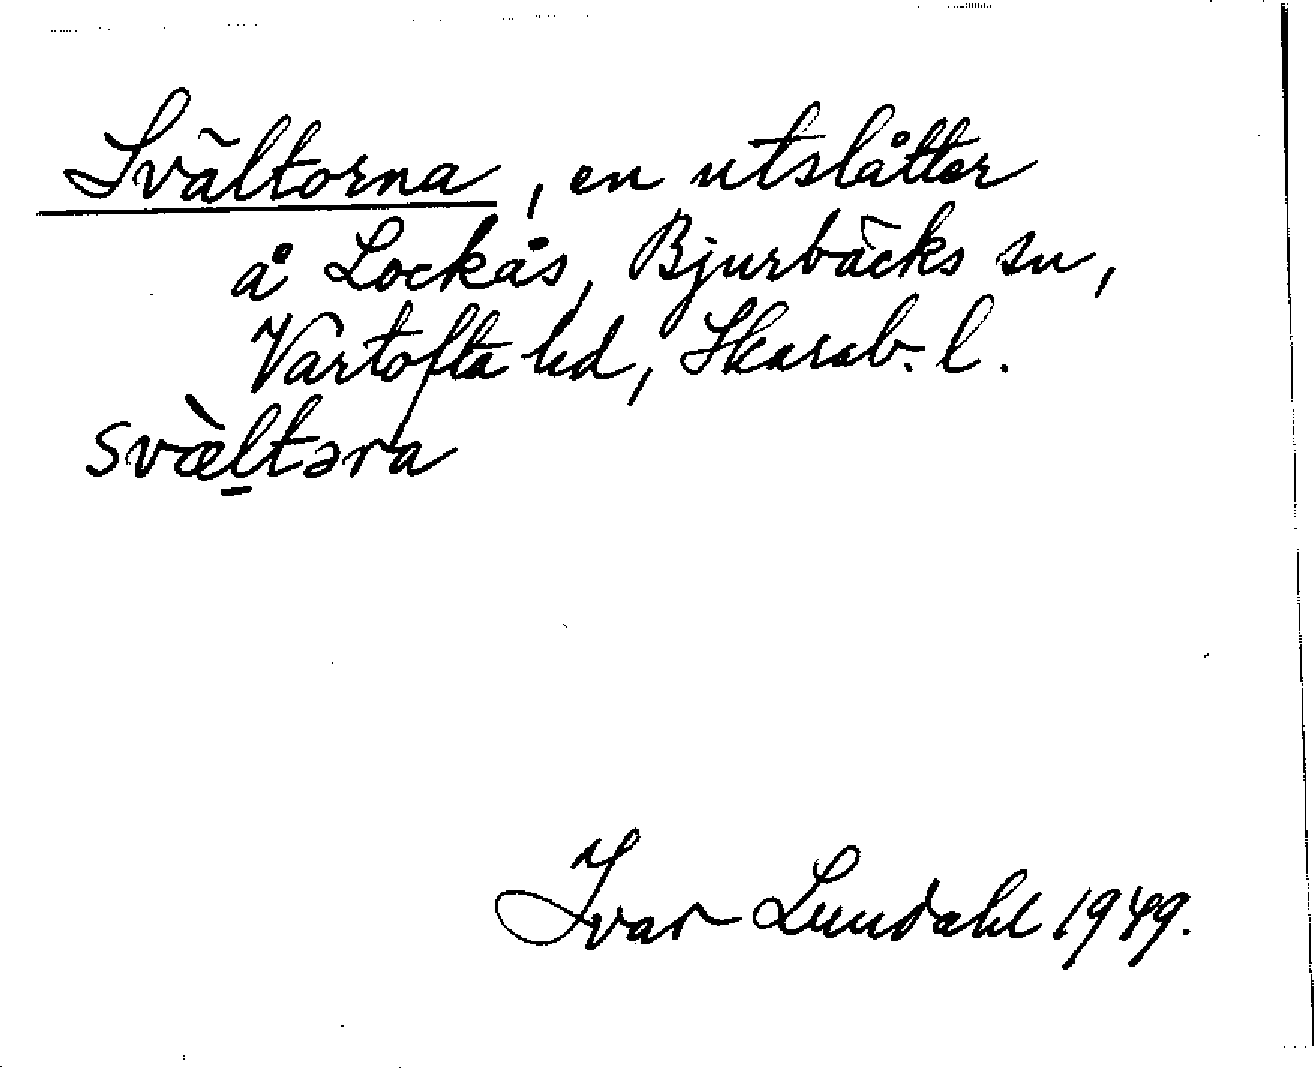 Svältorna, en utslåtter
å Lockås, Bjurbäcks sn,
Vartofta hd, Skarab. l.
svæ̀l̠təra
Ivar Lundahl 1949.